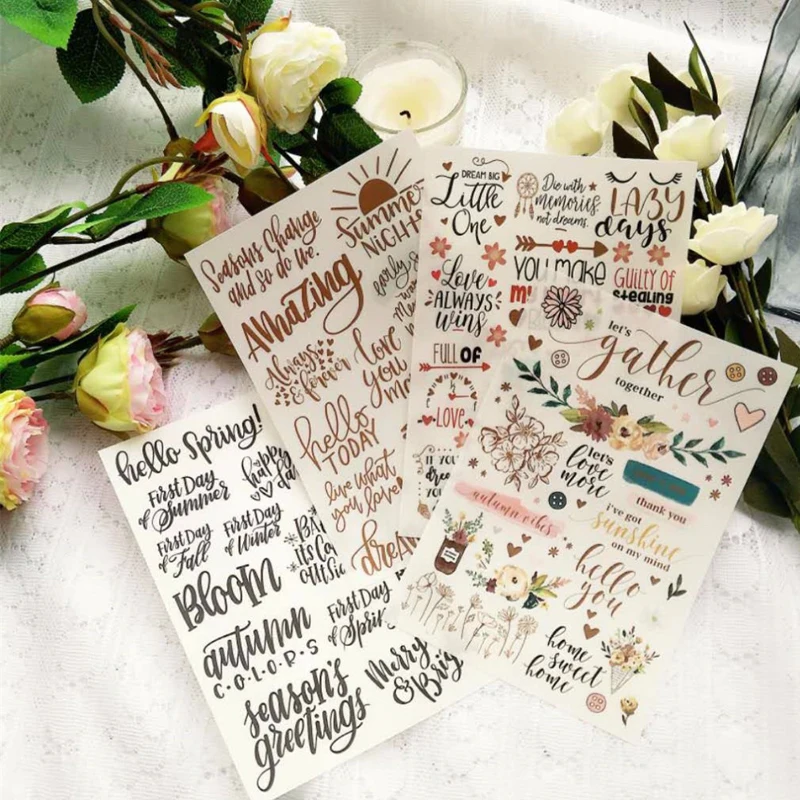 Seasons Change
and so do we.
Summer
NIGHTS
AMAZING
early
Always
& forever
love
you
hello
TODAY
live what
you love
DREAM BIG
Little
One
Die with
memories,
not dreams.
LAZY
days
Love
ALWAYS
wins
YOU MAKE
GUILTY OF
stealing
FULL OF
LOVE
IF YOU
YOU
let's
gather
together
let's
love
more
thank you
autumn vibes
i've got
sunshine
on my mind
hello
you
home
sweet
home
hello Spring!
First Day
of Summer
happy
First Day
of Fall
First Day
of Winter
Bloom
First Day
of
autumn
COLORS
season's
greetings
Merry
&